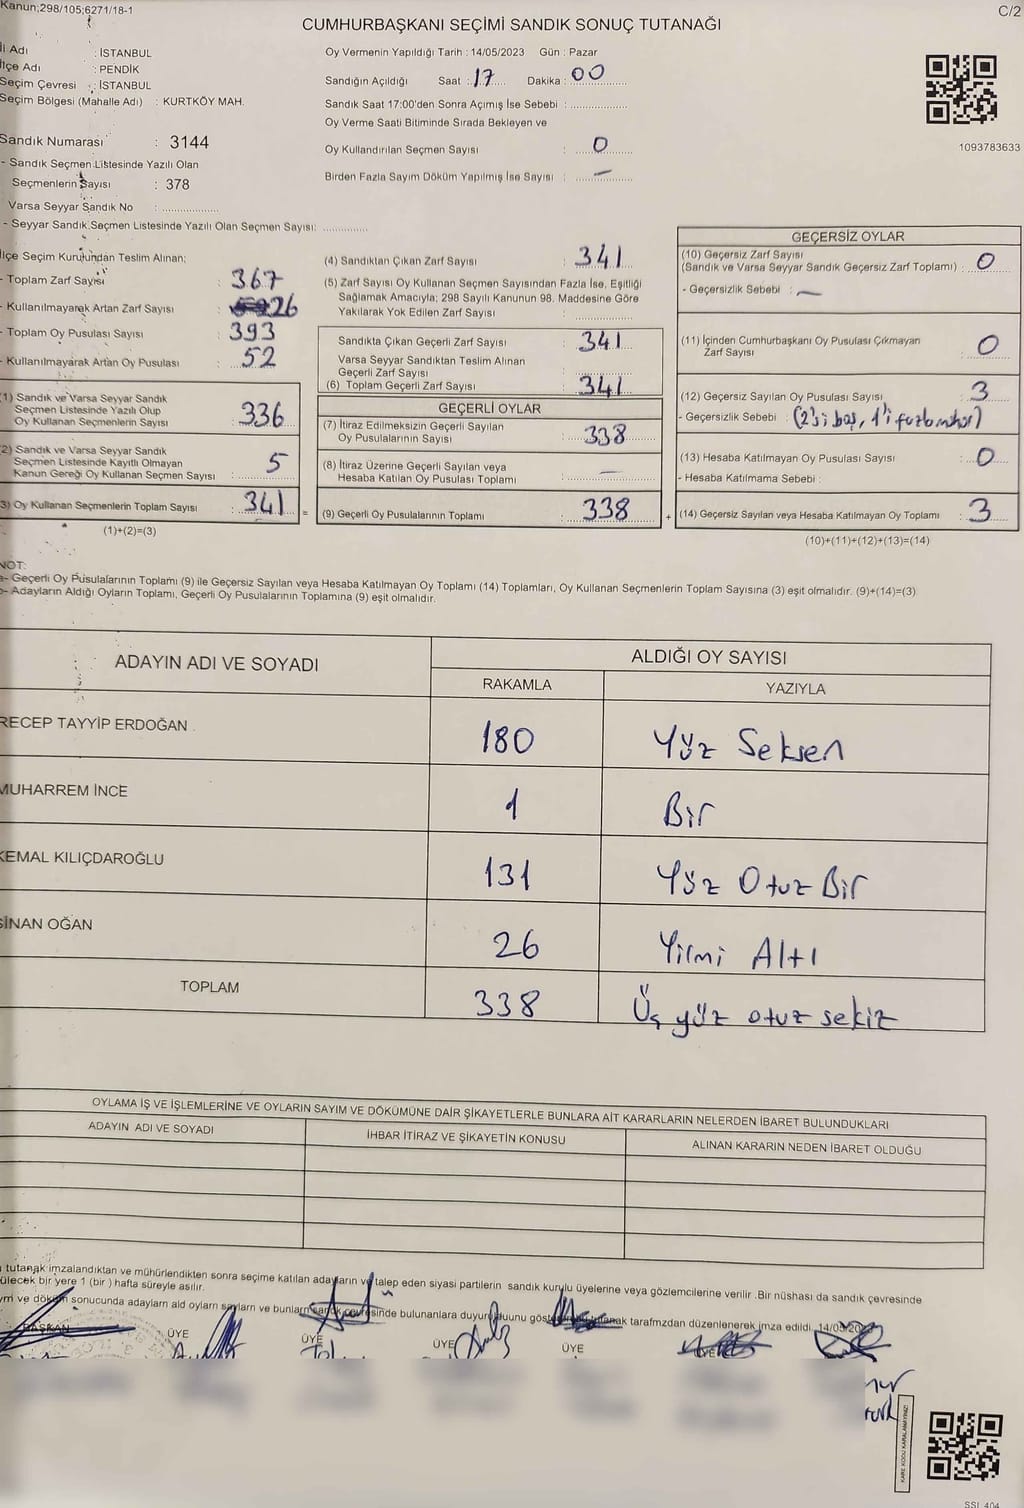 Kanun;298/105;6271/18-1
C/2
CUMHURBAŞKANI SEÇİMİ SANDIK SONUÇ TUTANAĞI
İl Adı : İSTANBUL
İlçe Adı : PENDİK
Seçim Çevresi : İSTANBUL
Seçim Bölgesi (Mahalle Adı) : KURTKÖY MAH.
Sandık Numarası : 3144
- Sandık Seçmen Listesinde Yazılı Olan
Seçmenlerin Sayısı : 378
Varsa Seyyar Sandık No : ....................
- Seyyar Sandık Seçmen Listesinde Yazılı Olan Seçmen Sayısı: ...............
Oy Vermenin Yapıldığı Tarih : 14/05/2023 Gün : Pazar
Sandığın Açıldığı Saat : 17 Dakika : 00
Sandık Saat 17:00'den Sonra Açımış İse Sebebi : ....................
Oy Verme Saati Bitiminde Sırada Bekleyen ve
Oy Kullandırılan Seçmen Sayısı : 0
Birden Fazla Sayım Döküm Yapılmış İse Sayısı : —
1093783633
İlçe Seçim Kurulundan Teslim Alınan;
- Toplam Zarf Sayısı : 367
- Kullanılmayarak Artan Zarf Sayısı : 26
- Toplam Oy Pusulası Sayısı : 393
- Kullanılmayarak Artan Oy Pusulası : 52
(1) Sandık ve Varsa Seyyar Sandık
Seçmen Listesinde Yazılı Olup
Oy Kullanan Seçmenlerin Sayısı : 336
(2) Sandık ve Varsa Seyyar Sandık
Seçmen Listesinde Kayıtlı Olmayan
Kanun Gereği Oy Kullanan Seçmen Sayısı : 5
(3) Oy Kullanan Seçmenlerin Toplam Sayısı : 341 =
(1)+(2)=(3)
(4) Sandıktan Çıkan Zarf Sayısı : 341
(5) Zarf Sayısı Oy Kullanan Seçmen Sayısından Fazla İse, Eşitliği
Sağlamak Amacıyla; 298 Sayılı Kanunun 98. Maddesine Göre
Yakılarak Yok Edilen Zarf Sayısı : ....................
Sandıkta Çıkan Geçerli Zarf Sayısı : 341
Varsa Seyyar Sandıktan Teslim Alınan
Geçerli Zarf Sayısı : ....................
(6) Toplam Geçerli Zarf Sayısı : 341
GEÇERLİ OYLAR
(7) İtiraz Edilmeksizin Geçerli Sayılan
Oy Pusulalarının Sayısı : 338
(8) İtiraz Üzerine Geçerli Sayılan veya
Hesaba Katılan Oy Pusulası Toplamı : —
(9) Geçerli Oy Pusulalarının Toplamı : 338 +
GEÇERSİZ OYLAR
(10) Geçersiz Zarf Sayısı
(Sandık ve Varsa Seyyar Sandık Geçersiz Zarf Toplamı) : 0
- Geçersizlik Sebebi : —
(11) İçinden Cumhurbaşkanı Oy Pusulası Çıkmayan
Zarf Sayısı : 0
(12) Geçersiz Sayılan Oy Pusulası Sayısı : 3
- Geçersizlik Sebebi : (2'si boş, 1'i
(13) Hesaba Katılmayan Oy Pusulası Sayısı : 0
- Hesaba Katılmama Sebebi :
(14) Geçersiz Sayılan veya Hesaba Katılmayan Oy Toplamı : 3
(10)+(11)+(12)+(13)=(14)
NOT:
a- Geçerli Oy Pusulalarının Toplamı (9) ile Geçersiz Sayılan veya Hesaba Katılmayan Oy Toplamı (14) Toplamları, Oy Kullanan Seçmenlerin Toplam Sayısına (3) eşit olmalıdır. (9)+(14)=(3)
b- Adayların Aldığı Oyların Toplamı, Geçerli Oy Pusulalarının Toplamına (9) eşit olmalıdır.
ADAYIN ADI VE SOYADI
ALDIĞI OY SAYISI
RAKAMLA YAZIYLA
RECEP TAYYİP ERDOĞAN 180 Yüz Seksen
MUHARREM İNCE 1 Bir
KEMAL KILIÇDAROĞLU 131 Yüz Otuz Bir
SİNAN OĞAN 26 Yirmi Altı
TOPLAM 338 Üç yüz otuz sekiz
OYLAMA İŞ VE İŞLEMLERİNE VE OYLARIN SAYIM VE DÖKÜMÜNE DAİR ŞİKAYETLERLE BUNLARA AİT KARARLARIN NELERDEN İBARET BULUNDUKLARI
ADAYIN ADI VE SOYADI
İHBAR İTİRAZ VE ŞİKAYETİN KONUSU
ALINAN KARARIN NEDEN İBARET OLDUĞU
tutanak imzalandıktan ve mühürlendikten sonra seçime katılan adayların ve talep eden siyasi partilerin sandık kurulu üyelerine veya gözlemcilerine verilir .Bir nüshası da sandık çevresinde
bir yere 1 (bir ) hafta süreyle asılır.
ve döküm sonucunda adayların ald oyların sayların ve bunların sandık çevresinde bulunanlara tarafmzdan düzenlenerek imza edildi.
BAŞKAN
ÜYE
ÜYE
ÜYE
ÜYE
ÜYE
KARE KODU KARALAMAYINIZ!
SSI 404